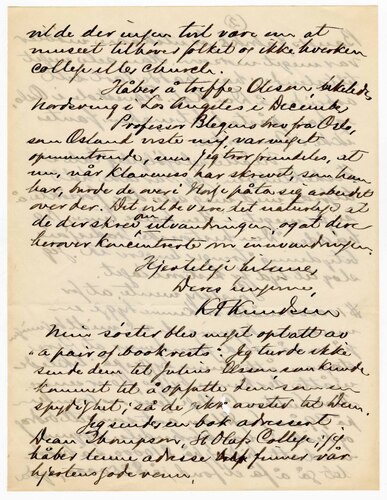 vil de der ingen tvil være om at
museet tilhører folket or ikke hverken
college eller church.
Håber å treffe Oleson,
nordering i Los Angeles i Decemb.
Professor Blegens brev fra Oslo,
som Osland viste mig var meget
opmuntrende, men jeg tror fremdeles, at
nu, når Klaveness har skrevet, som han
har, burde de over i Norge påta sig arbeidet
over der. Det vil de være det naturlige at
de der skrev om utvandringen, og at dere
herover koncentrerte om innvandringen.
Hjertelig hilsen,
Deres ungerne,
K A Knudsen
Min søster blev meget optatt av
"a pair of book rests". Jeg turde ikke
sende dem til Julius Olson, som kunde
kommet til å opfatte dem som en
spydighet, så de gikk avsted til Dem.
Jeg sender en bok adressert
Dean Thompson, St Olaf College, jeg
håber denne adresse finner vår
hjertens gode venn.